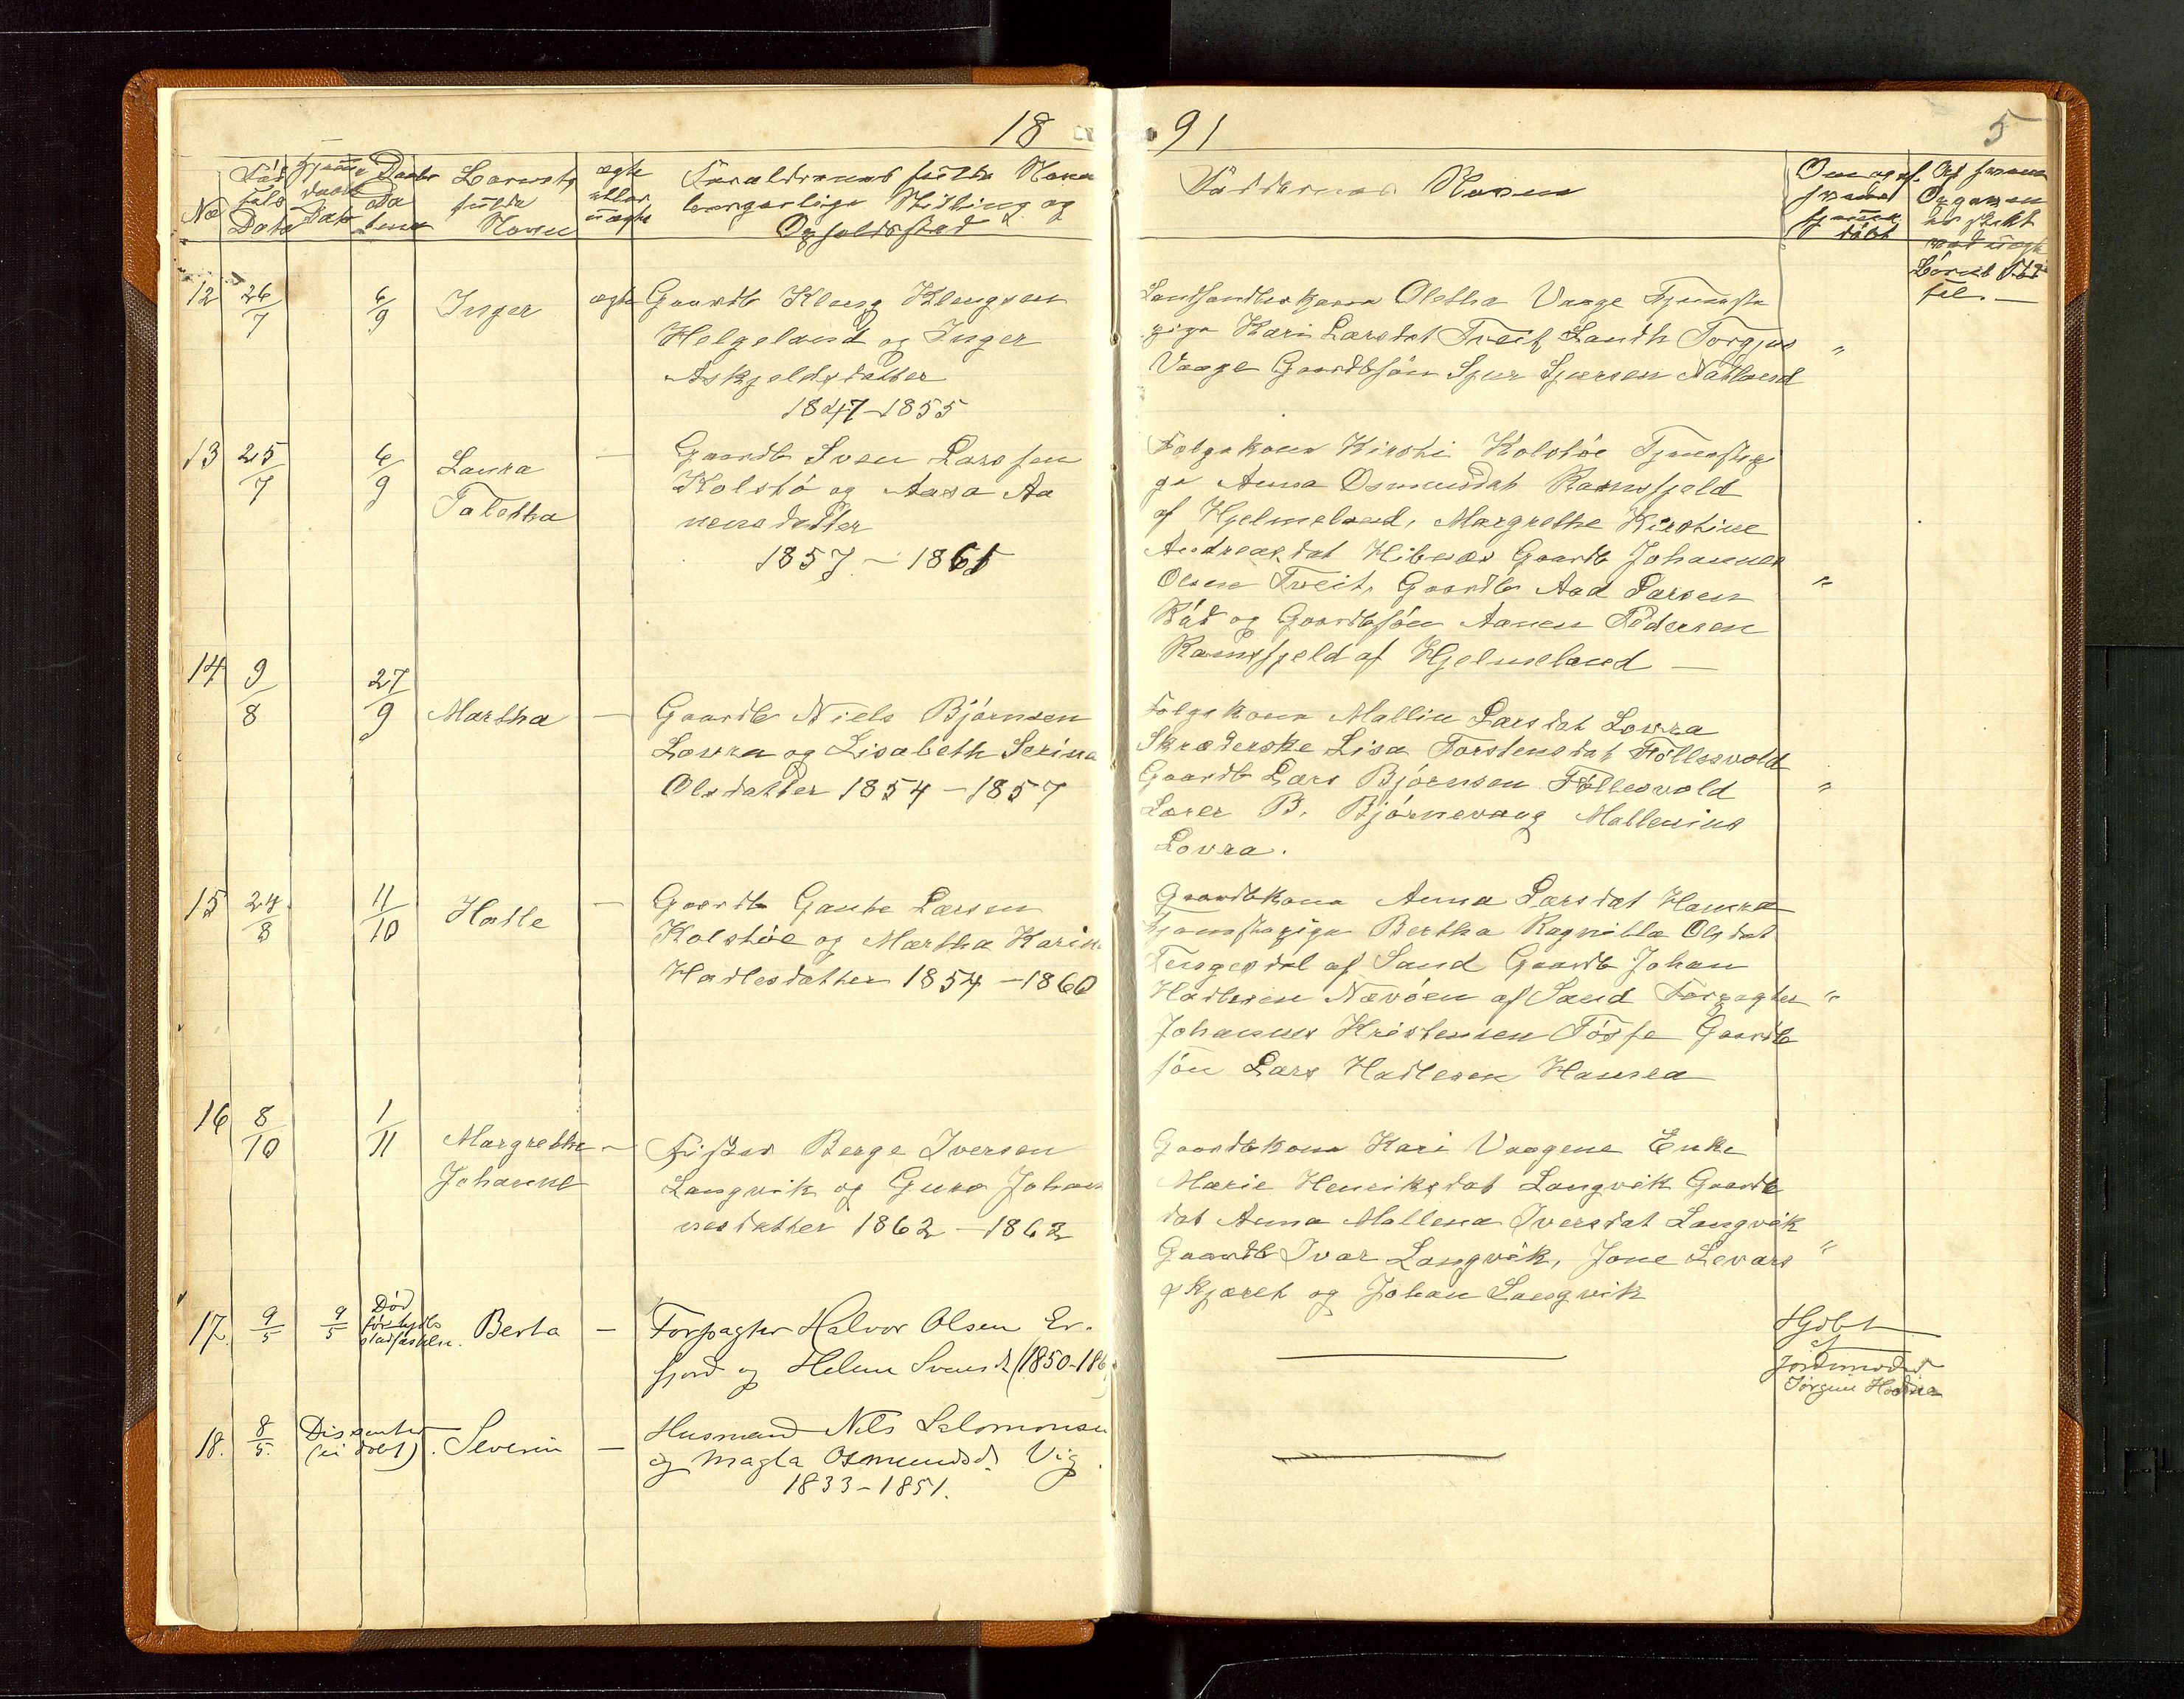 18 91 5
No Fød sels Dato Hjemme daabs Dato Daabs Dato Barnets fulde Navn ægte eller uægte Forældrenes fulde Navn borgerlige Stilling og Opholdssted
Faddernes Navn
12 26/7 6/9 Inger ægte Gaardb Klung Klungsen
Helgeland og Inger
Askjeldsdatter
1847-1855
Landhandlerkone Oletha Vaage Tjeneste
pige Kari Larsdat Tveit Landh Torgjus "
Vaage Gaardbsøn Sjur Sjursen Natland
13 25/7 6/9 Laura Taletha — Gaardb Sven Larssen
Kolstø og Aasa Aa
nensdatter
1857 - 1865
Følgekone Kirsti Kolstøe Tjenestepi
ge Anna Osmundsdat Ramsfjeld
af Hjelmeland, Margrethe Kirstine
Andreasdat Hibnes Gaardb Johannes
Olsen Tveit, Gaardb Aad Larsen "
Bād og Gaardbsøn Aanen Pedersen
Ramsfjeld af Hjelmeland —
14 9/8 27/9 Martha — Gaardb Niels Bjørnsen
Lovra og Lisabeth Serina
Olsdatter 1854 - 1857
Følgekone Mallin Larsdat Lovra
Skræderske Lisa Torstensdat Føllesvold
Gaardb Lars Bjørnsen Føllesvold "
Lærer B. Bjørnevaag Mallenius
Lovra.
15 24/8 11/10 Hatle — Gaardb Gaute Larsen
Kolstøe og Martha Karin
Hatlesdatter 1854 - 1860
Gaardbkone Anna Larsdat Hamra
Tjenestepige Bertha Ragnilla Olsdat
Tengesdal af Sand Gaardb Johan
Hatlesen Nævøen af Sand Forpagter "
Johannes Kristensen Fosse Gaardb
søn Lars Hatlesen Hamra
16 8/10 1/11 Margrethe Johanne — Fisker Berge Iversen
Langvik og Guro Johan
nesdatter 1862 - 1862
Gaardbkone Kari Vaagene Enke
Marie Henriksdat Langvik Gaardb
dat Anna Mallena Iversdat Langvik
Gaardb Ivar Langvik, Jone Levars "
skjæret og Johan Langvik
17. 9/5 9/5 Død før daabs stadfæstelse. Berta — Forpagter Halvor Olsen Er-
fjord og Helene Svensd (1850-186
Hjdbt af Jordemoder Jørgine Hodne
18. 8/5. Dissenter (ei døbt). Severin — Husmand Nils Salomonsen
og Magla Osmundsd. Vig.
1833-1851.